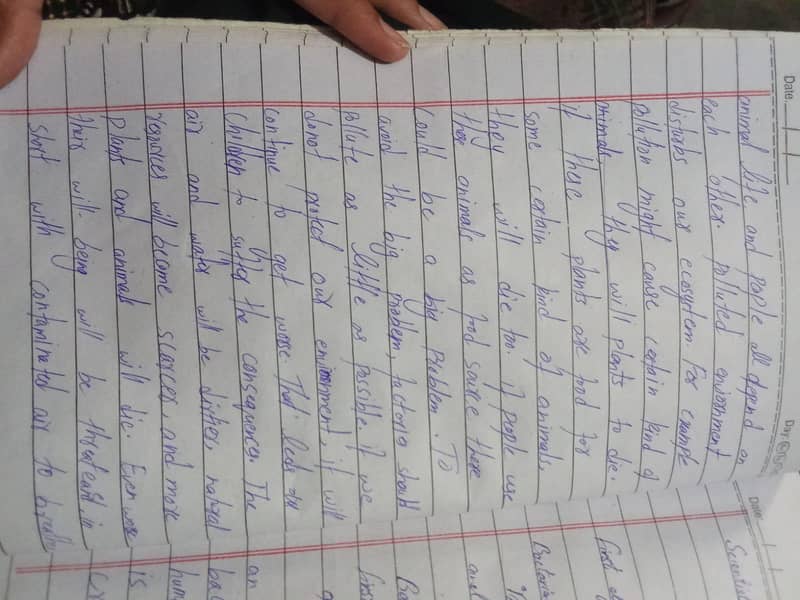 Date
Day
animal life and people all depend on
each other. polluted environment
disturbs our ecosystem. For example
pollution might cause certain kind of
animals, they will plants to die.
if these plants are food for
some certain kind of animals,
they will die too. if people use
those animals as food source there
could be a big Problem. To
avoid the big problem, factories should
pollute as little as possible. if we
donot protect our environment, it will
continue to get worse. That lead our
children to suffer the consequences. The
air and water will be dirtier, natural
resources will become scarces, and more
plants and animals will die. Even worse
their will-being will be threatened in
short with contaminated air to breath
Date
Scientis
First
Bacteria
and
an
bac
hum
is